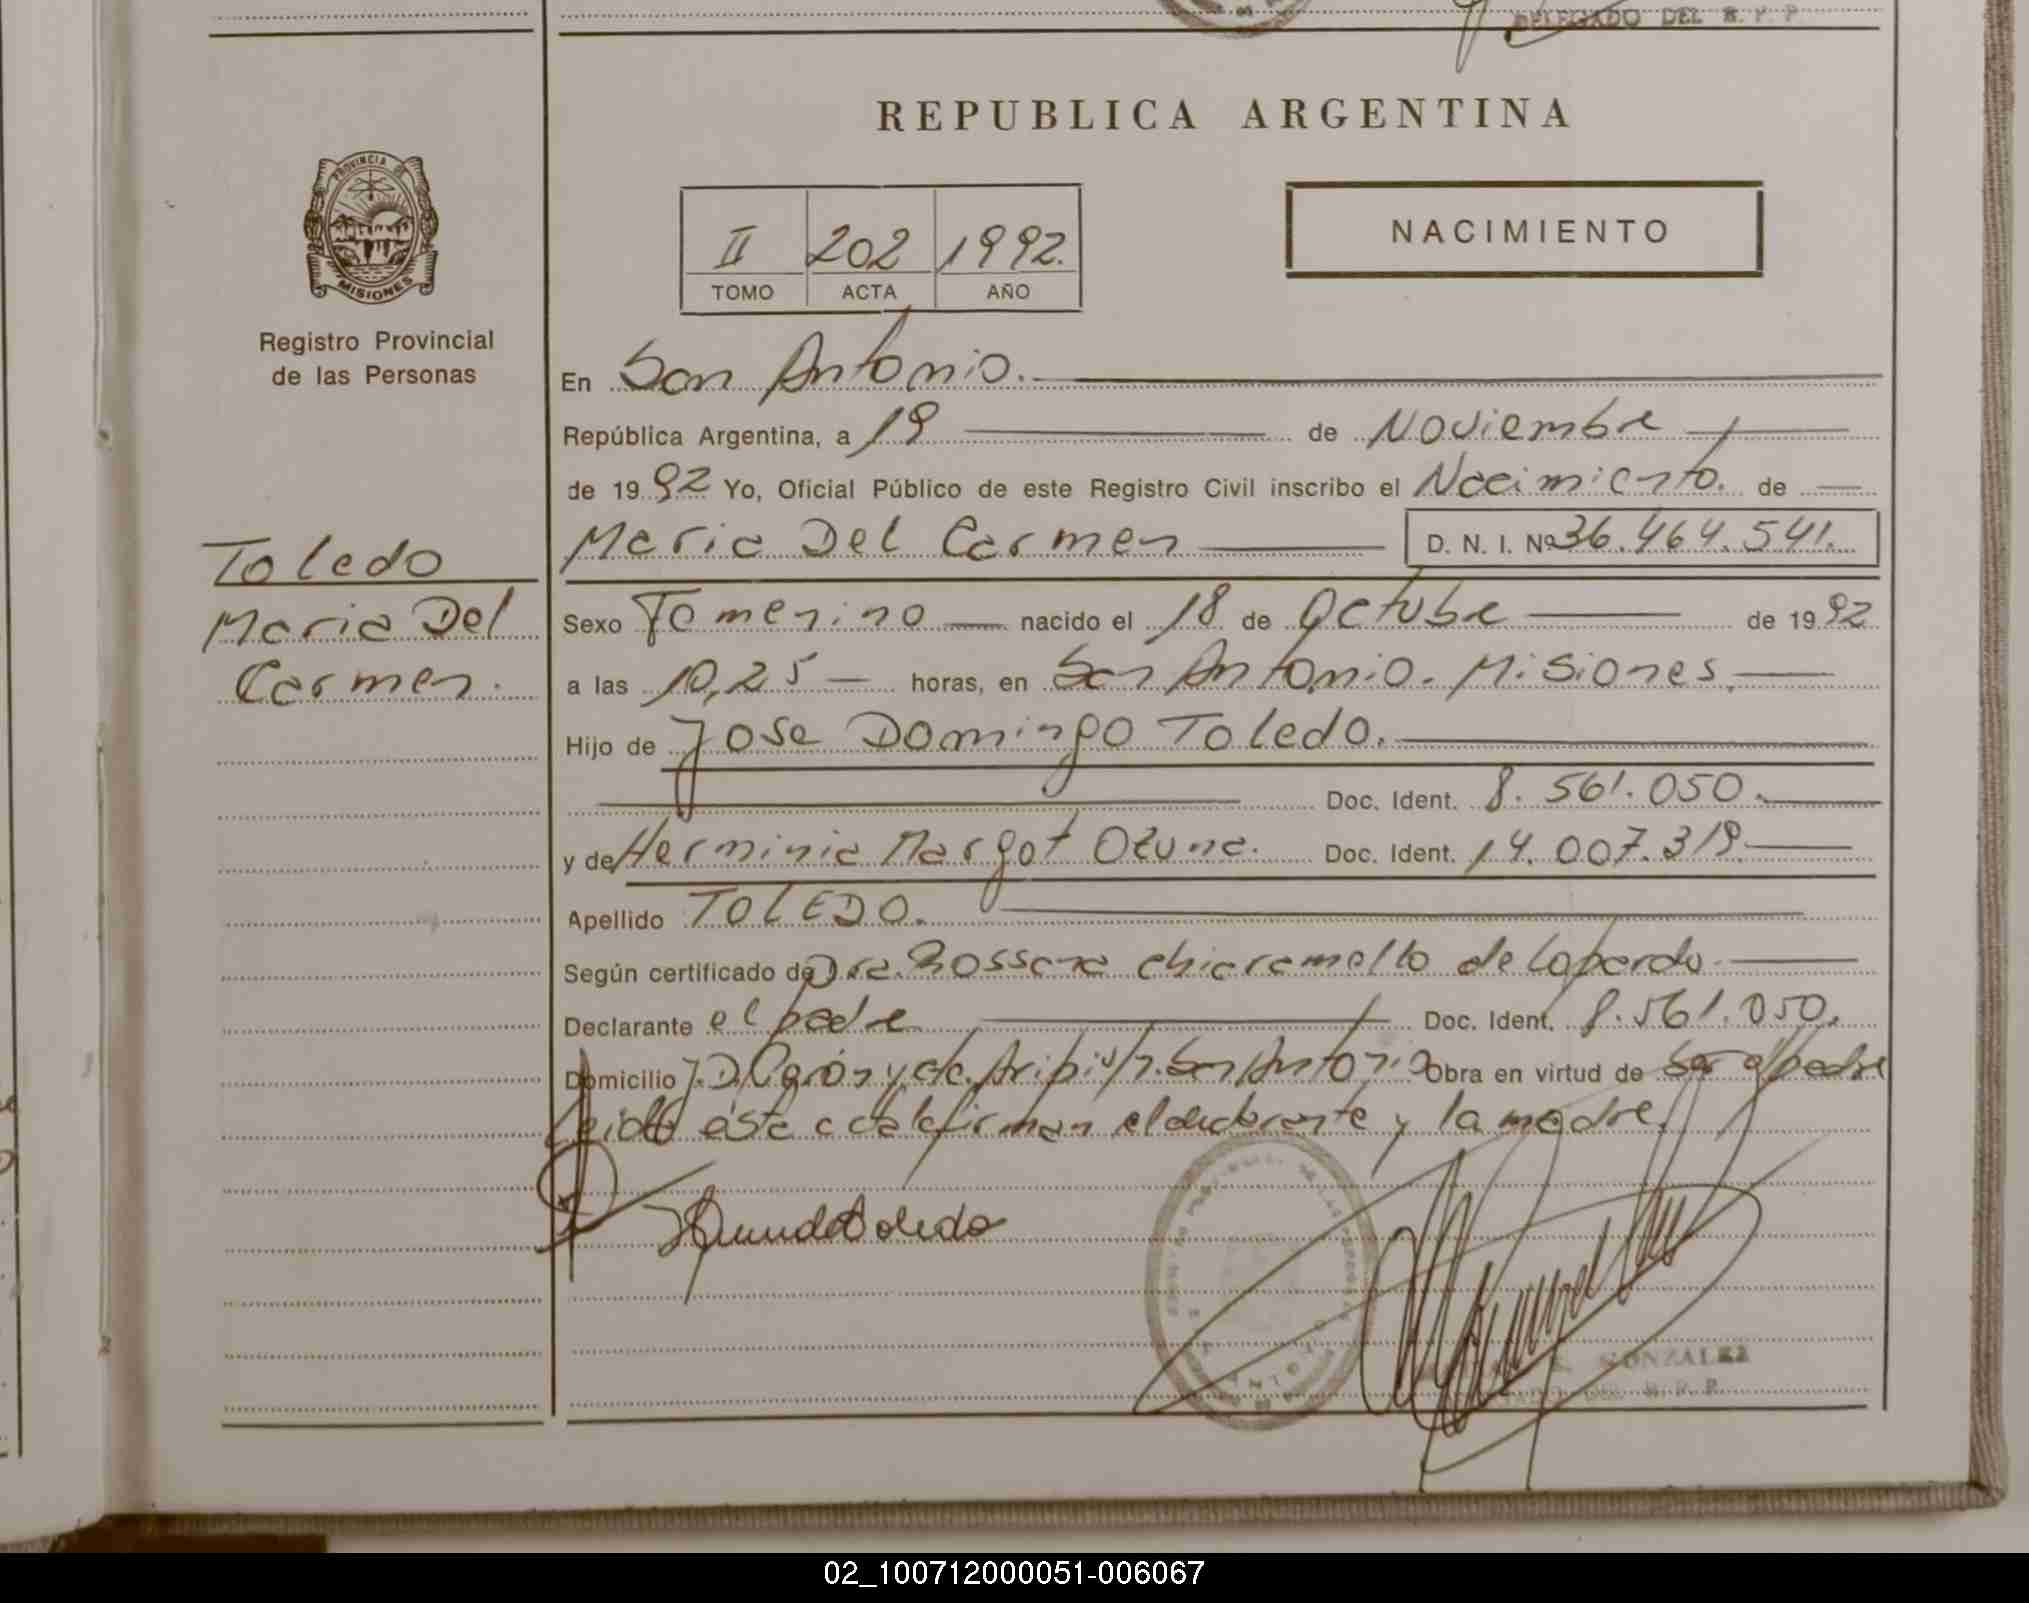 DELEGADO DEL R. P. P.
REPUBLICA ARGENTINA
PROVINCIA DE
MISIONES
Registro Provincial
de las Personas
II 202 1992.
TOMO ACTA AÑO
NACIMIENTO
En San Antonio.
República Argentina, a 19 de Noviembre
de 1992 Yo, Oficial Público de este Registro Civil inscribo el Nacimiento. de
Toledo
Maria Del
Carmen.
Maria Del Carmen D. N. I. Nº 36.464.541.
Sexo Femenino nacido el 18 de Octubre de 1992
a las 10,25 horas, en San Antonio. Misiones.
Hijo de Jose Domingo Toledo.
Doc. Ident. 8.561.050.
y de Herminia Margot Ozuna. Doc. Ident. 14.007.319.
Apellido TOLEDO.
Según certificado de Dra. Rossana Chiaramello de Lopardo
Declarante el padre Doc. Ident. 8.561.050.
Domicilio J.D. Perón y de. Aripi s/n. San Antonio Obra en virtud de Ser el padre
Leido esta acta firman el declarante y la madre.
GONZALEZ
DEL R. P. P.
02_100712000051-006067